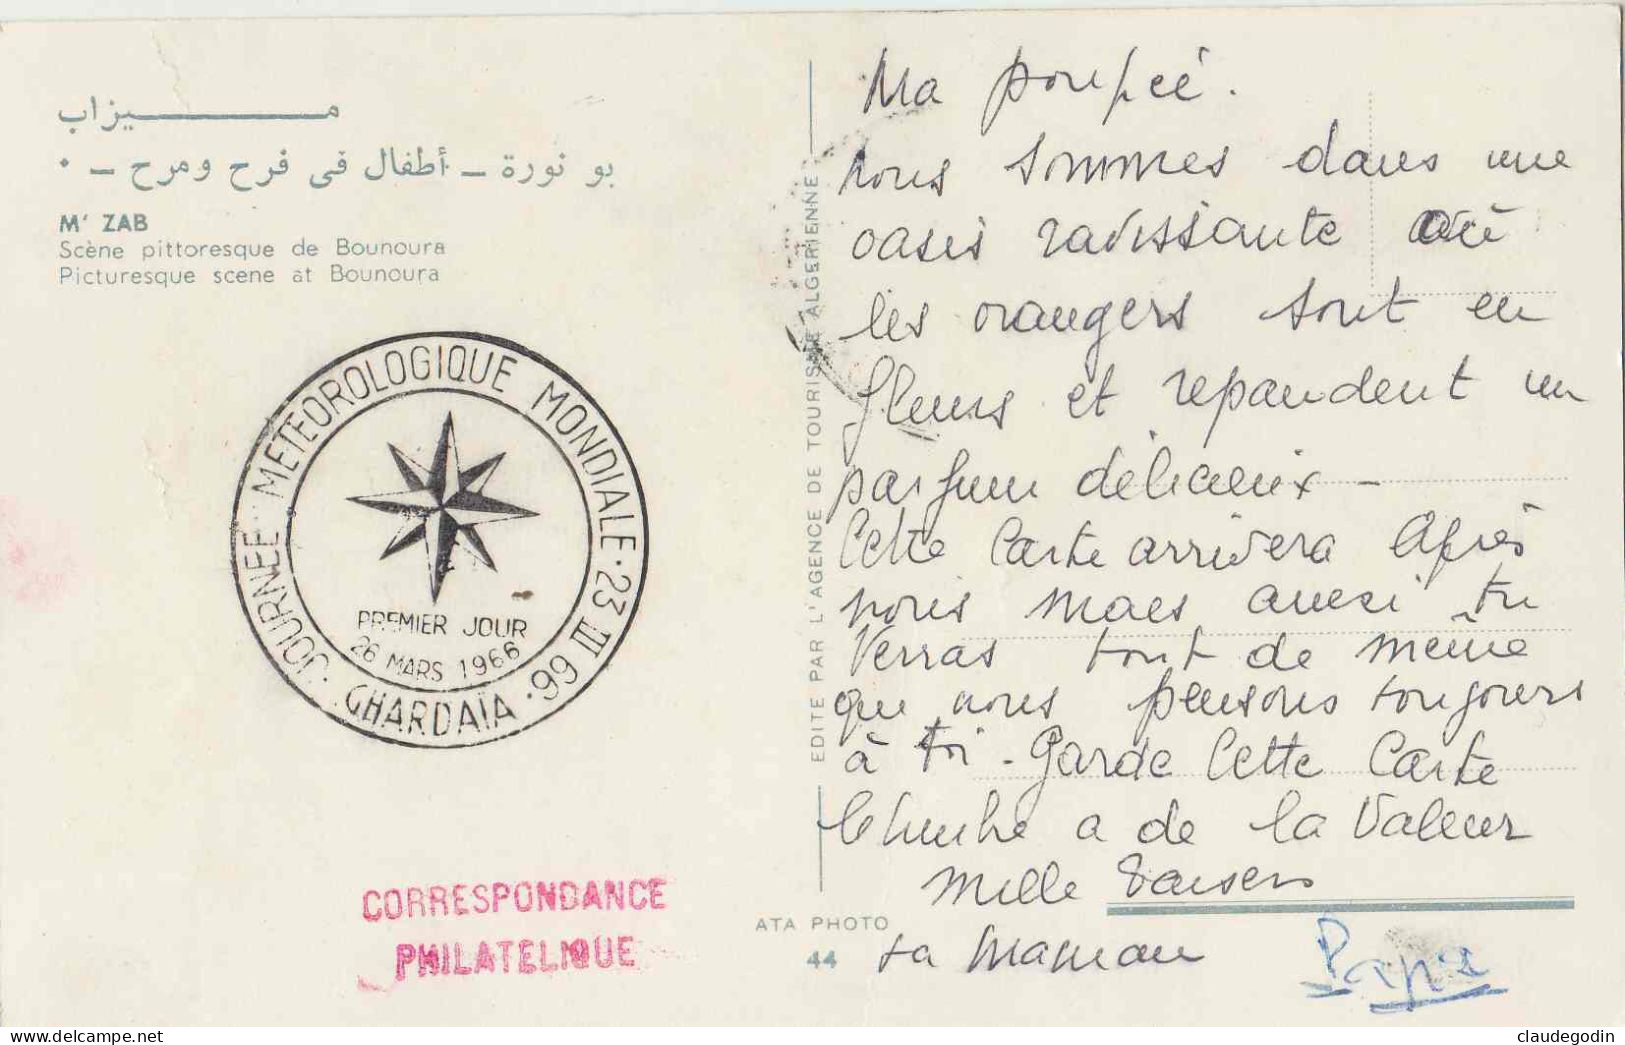 ميزاب
بو نورة - أطفال في فرح ومرح - .
M' ZAB
Scène pittoresque de Bounoura
Picturesque scene at Bounoura
JOURNEE METEOROLOGIQUE MONDIALE · 23 III 66 · GHARDAÏA ·
PREMIER JOUR
26 MARS 1966
CORRESPONDANCE
PHILATELIQUE
EDITE PAR L'AGENCE DE TOURISME ALGERIENNE
ATA PHOTO
44
Ma poupée.
nous sommes dans une
oasis ravissante où
les orangers sont en
fleurs et repandent un
parfum délicieux -
Cette Carte arrivera Après
nous mais aussi tu
Verras tout de même
que nous pensons toujours
à toi - Garde Cette Carte
le timbre a de la Valeur
Mille Baisers
ta Maman
Papa
claudegodin